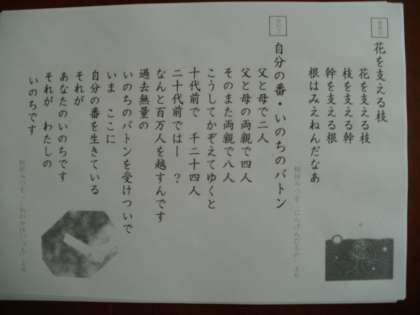 花を支える枝
花を支える枝
枝を支える幹
幹を支える根
根はみえねんだなあ
自分の番・いのちのバトン
父と母で二人
父と母の両親で四人
そのまた両親で八人
こうしてかぞえてゆくと
十代前で 千二十四人
二十代前では― ?
なんと百万人を越すんです
過去無量の
いのちのバトンを受けついで
いま ここに
自分の番を生きている
それが
あなたのいのちです
それが わたしの
いのちです